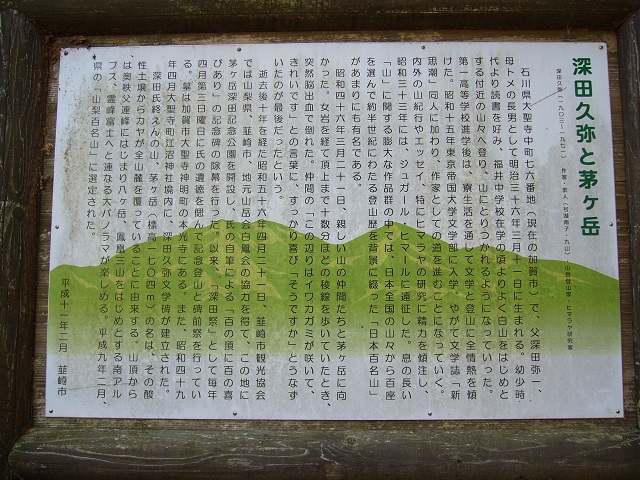 深田久弥と茅ヶ岳
深田久弥(一九〇三~一九七一) 作家・俳人(号・九山)・山岳登山家・ヒマラヤ研究家
石川県大聖寺中町七六番地(現在の加賀市)で、父深田弥一、
母トメの長男として明治三十六年三月十一日に生まれる。幼少時
代より読書を好み、福井中学校在学の頃よりよく白山をはじめと
する付近の山々へ登り、山にとりつかれるようになっていった。
第一高等学校進学後は、寮生活を通して文学と登山に全情熱を傾
けた。昭和十五年東京帝国大学文学部に入学、やがて文学誌「新
思潮」同人に加わり、作家としての道を進むことになっていく。
内外の山紀行やエッセイ、特にヒマラヤの研究に精力を傾注し、
昭和三十三年には、ジュガール・ヒマールに遠征した。息の長い
「山」に関する膨大な作品群の中では、日本全国の山々から百座
を選んで約半世紀にわたる登山歴を背景に綴った「日本百名山」
があまりにも有名である。
昭和四十六年三月二十一日、親しい山の仲間だちと茅ヶ岳に向
かった。女岩を経て頂上まで十数分ほどの稜線を歩いていたとき、
突然脳出血で倒れた。仲間の「この辺りはイワカガミが咲いて、
きれいです」との言葉に、すっかり喜び「そうですか」とうなず
いたのが最後だったという。
逝去後十年を経た昭和五十六年四月二十一日、韮崎市観光協会
では山梨県、韮崎市、地元山岳会白鳳会の協力を得て、この地に
茅ヶ岳深田記念公園を開設し、氏の自筆による「百の頂に百の喜
びあり」の記念碑の除幕を行った。以来、「深田祭」として毎年
四月第三日曜日に氏の遺徳を偲んで記念登山と碑前祭を行ってい
る。墓は加賀市大聖寺神明町の本光寺にある。また、昭和四十九
年四月大聖寺町江沼神社境内に、深田久弥文学碑が建立された。
深田氏終えんの山、茅ヶ岳(標高一七〇四m)の名は、その酸
性土壌からカヤが全山麓を覆っていることに由来する。山頂から
は奥秩父連峰にはじまり八ヶ岳、鳳凰三山をはじめとする南アル
プス、霊峰富士へと連なる大パノラマが楽しめる。平成九年二月、
県の「山梨百名山」に選定された。
平成十一年二月 韮崎市